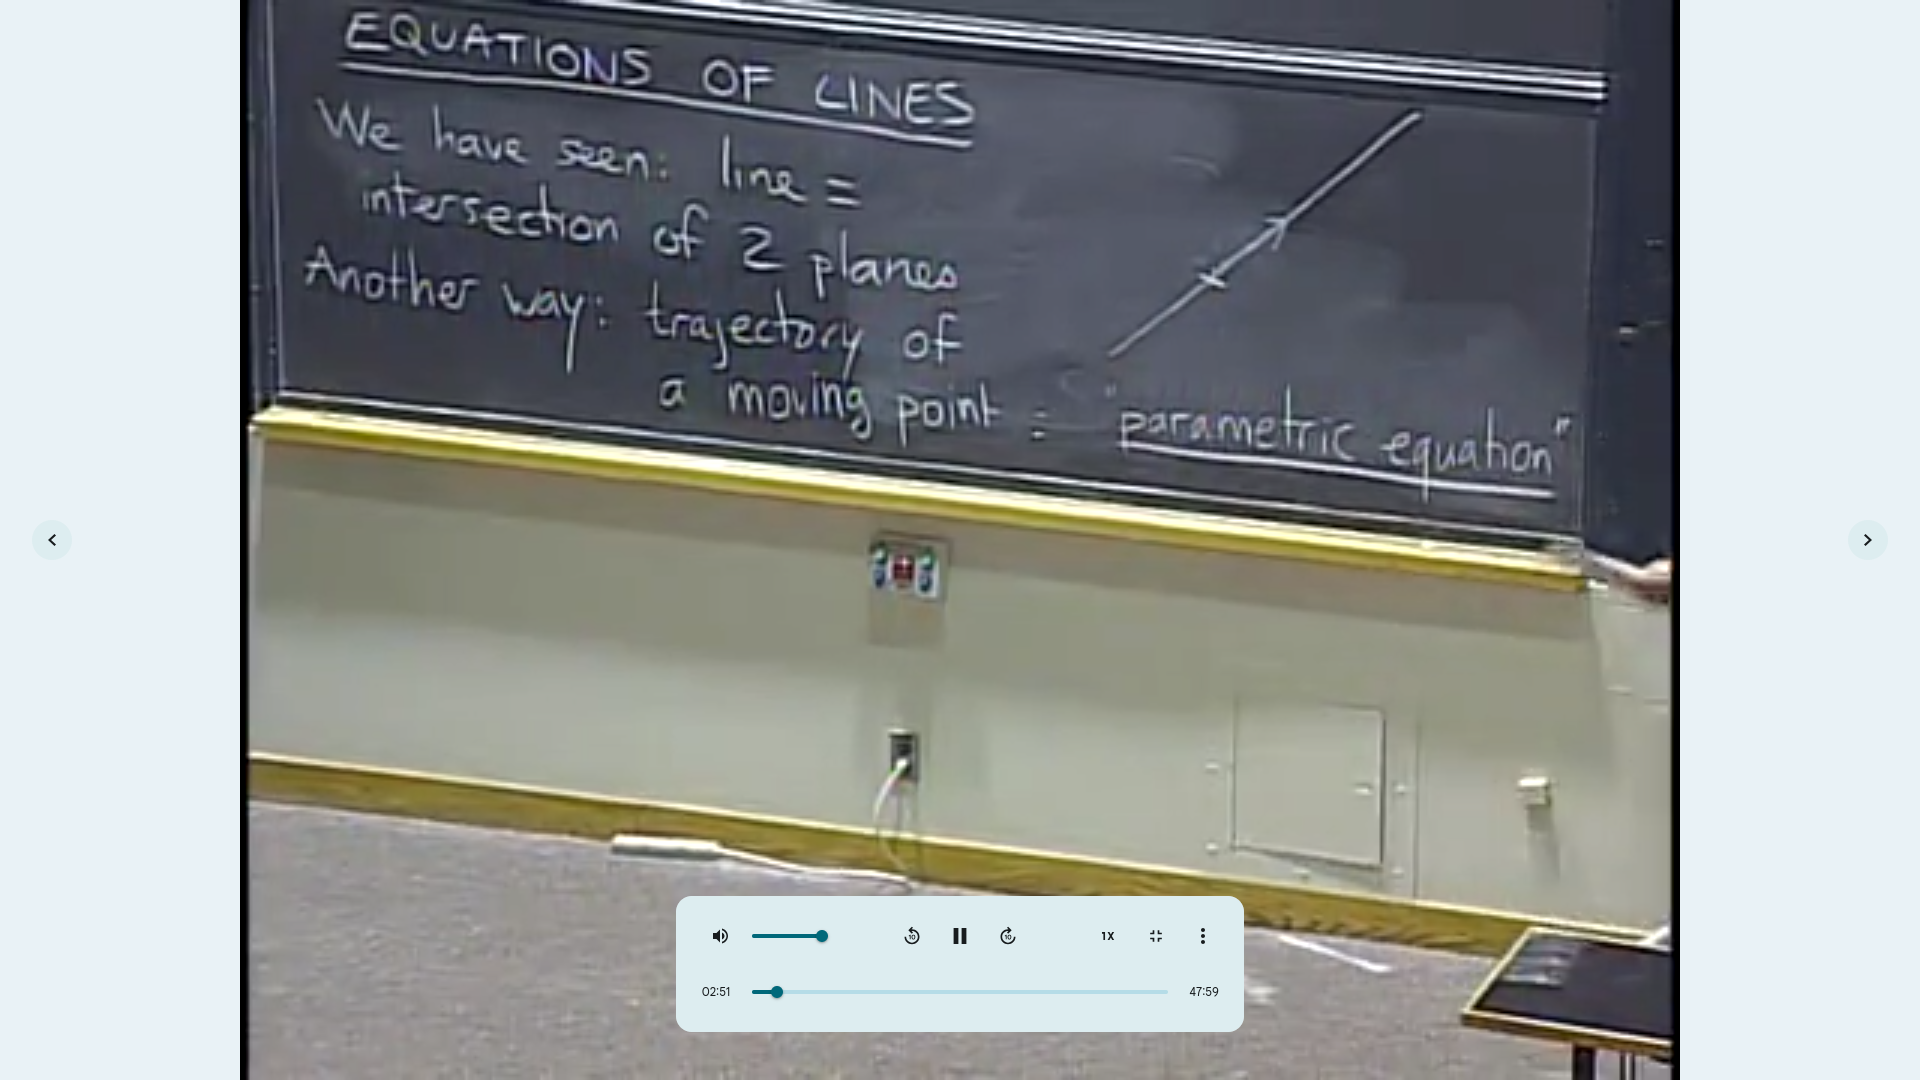 EQUATIONS OF LINES
We have seen: line =
intersection of 2 planes
Another way: trajectory of
a moving point = "parametric equation"
10
10
1X
02:51
47:59